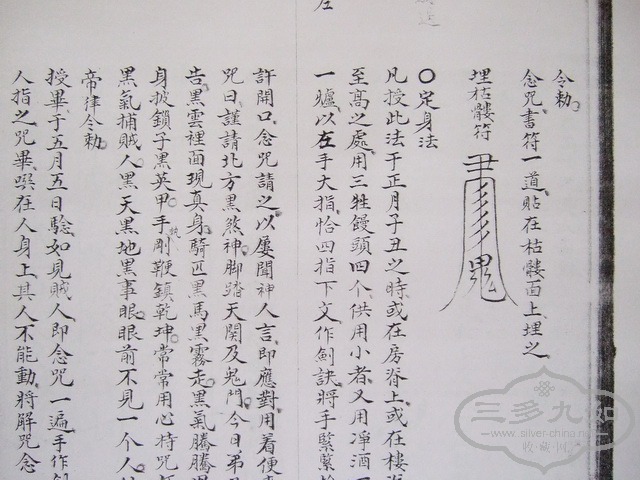 令勅
念咒書符一道貼在枯髏面上埋之
埋枯髏符
鬼
○定身法
凡授此法于正月子丑之時或在房脊上或在樓
至高之處用三牲饅頭四个供用小者又用渾酒
一壚以在手大指恰四指下文作劍訣將手緊緊
許開口念咒請之以屡聞神人言即應對用着便
咒曰謹請北方黑煞神脚踏天関及鬼門今日弟
告黑雲裡面現真身騎匹黑馬黑霧走黑氣騰騰
身披鎖子黑英甲手執剛鞭鎮乾坤常常用心持咒
黑氣捕賊人黑天黑地黑事眼眼前不見一个人
帝律令勅
授畢于五月五日驗如見賊人即念咒一遍手作劍
人指之咒畢噀在人身上其人不能動將解咒念
左
三多九如
www.silver-china.net
收·藏·小